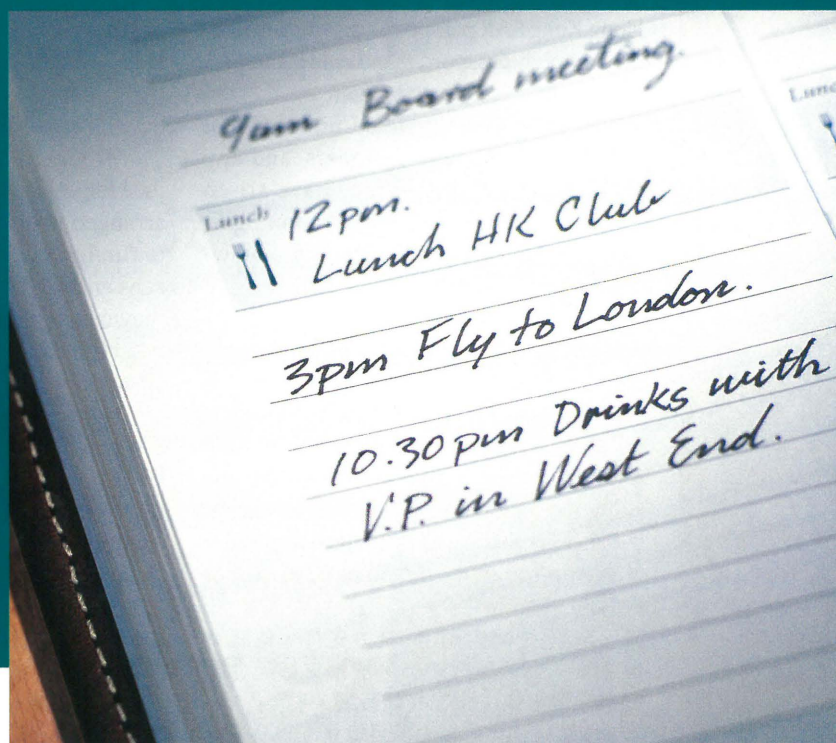 9am Board meeting.
Lunch 12pm.
Lunch HK Club
3pm Fly to London.
10.30pm Drinks with
V.P. in West End.